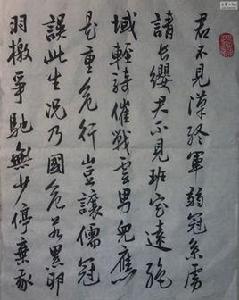 君不見漢終軍弱冠系虜
請長纓君不見班定遠絶
域輕騎催戰雲男兒應
是重危行豈讓儒冠
誤此生況乃國危若累卵
羽檄爭馳無少停棄我